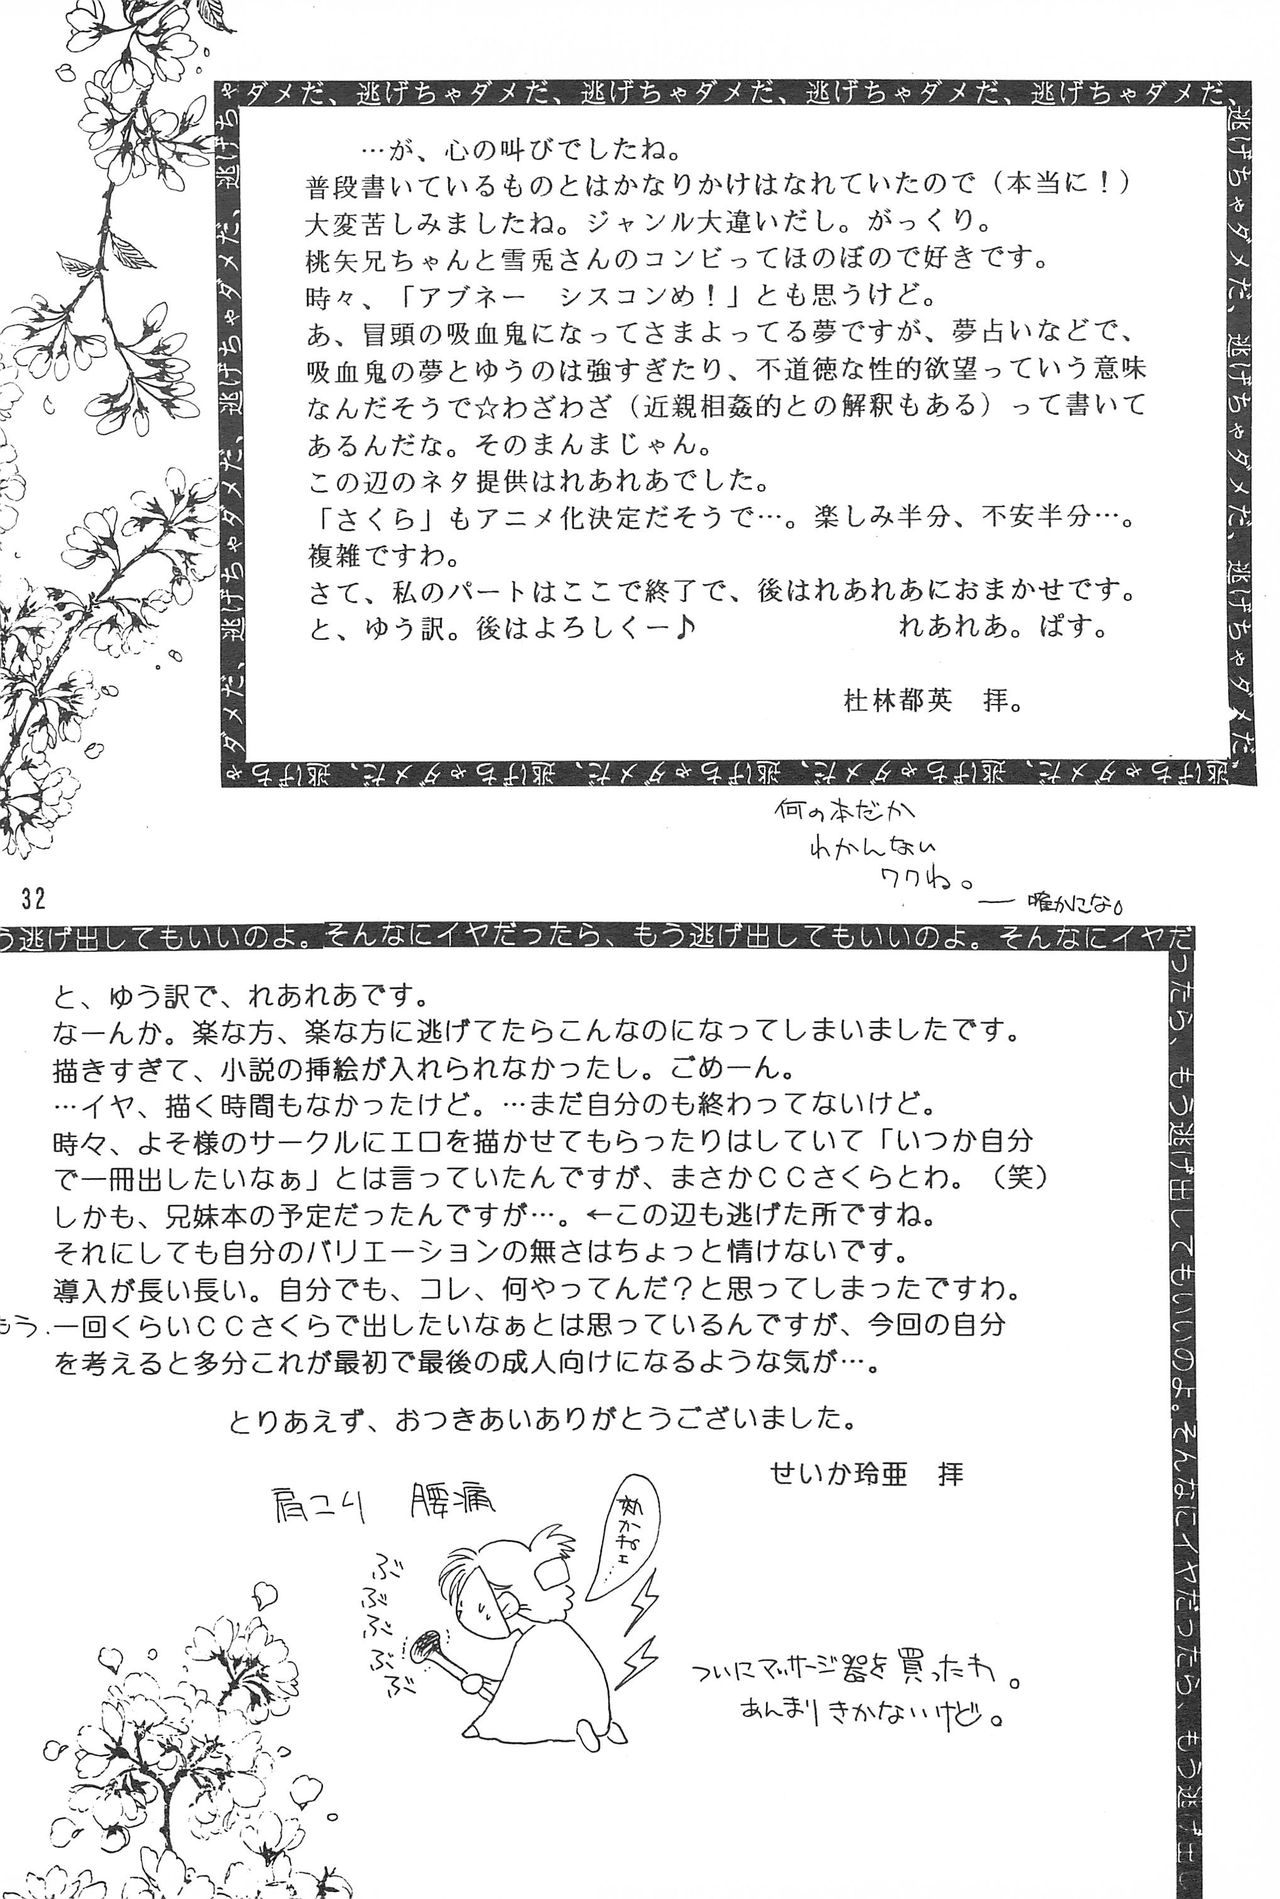 ゃダメだ、逃げちゃダメだ、逃げちゃダメだ、逃げちゃダメだ、逃げちゃダメだ、
逃げちゃダメだ、逃げちゃダメだ、逃げちゃダメだ、
…が、心の叫びでしたね。
普段書いているものとはかなりかけはなれていたので（本当に！）
大変苦しみましたね。ジャンル大違いだし。がっくり。
桃矢兄ちゃんと雪兎さんのコンビってほのぼので好きです。
時々、「アブネー　シスコンめ！」とも思うけど。
あ、冒頭の吸血鬼になってさまよってる夢ですが、夢占いなどで、
吸血鬼の夢とゆうのは強すぎたり、不道徳な性的欲望っていう意味
なんだそうで☆わざわざ（近親相姦的との解釈もある）って書いて
あるんだな。そのまんまじゃん。
この辺のネタ提供はれあれあでした。
「さくら」もアニメ化決定だそうで…。楽しみ半分、不安半分…。
複雑ですわ。
さて、私のパートはここで終了で、後はれあれあにおまかせです。
と、ゆう訳。後はよろしくー♪　れあれあ。ぱす。
杜林都英　拝。
ゃダメだ、逃げちゃダメだ、逃げちゃダメだ、逃げち
逃げちゃダメだ、逃げちゃダメだ、逃げちゃダメだ、逃げちゃダメだ、逃げち
何の本だか
わかんない
ワクね。
― 確かにな。
32
う逃げ出してもいいのよ。そんなにイヤだったら、もう逃げ出してもいいのよ。そんなにイヤだ
ったら、もう逃げ出してもいいのよ。そんなにイヤだったら、もう逃げ出し
と、ゆう訳で、れあれあです。
なーんか。楽な方、楽な方に逃げてたらこんなのになってしまいましたです。
描きすぎて、小説の挿絵が入れられなかったし。ごめーん。
…イヤ、描く時間もなかったけど。…まだ自分のも終わってないけど。
時々、よそ様のサークルにエロを描かせてもらったりはしていて「いつか自分
で一冊出したいなぁ」とは言っていたんですが、まさかＣＣさくらとわ。（笑）
しかも、兄妹本の予定だったんですが…。←この辺も逃げた所ですね。
それにしても自分のバリエーションの無さはちょっと情けないです。
導入が長い長い。自分でも、コレ、何やってんだ？と思ってしまったですわ。
もう、一回くらいＣＣさくらで出したいなぁとは思っているんですが、今回の自分
を考えると多分これが最初で最後の成人向けになるような気が…。
とりあえず、おつきあいありがとうございました。
せいか玲亜　拝
肩こり　腰痛
効かねェ…
ぶぶぶぶぶぶぶ
ついにマッサージ器を買ったわ。
あんまりきかないけど。